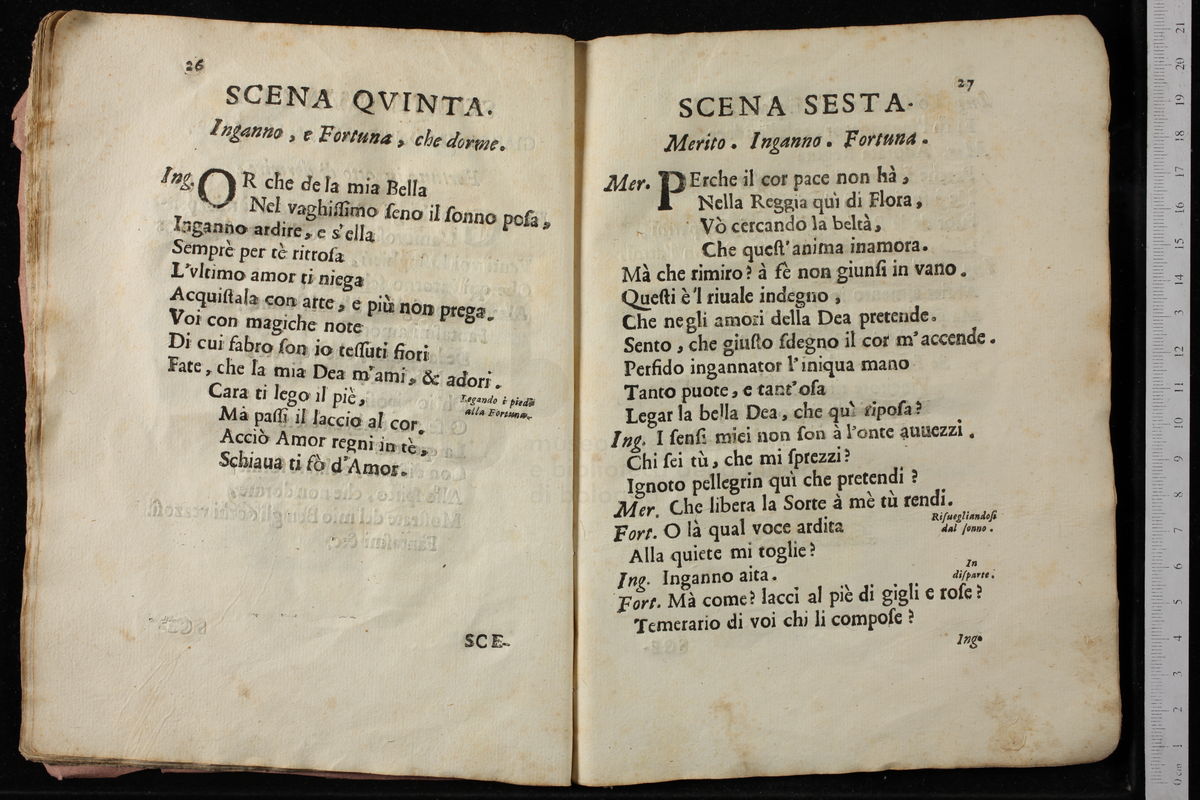 26
SCENA QVINTA.
Inganno, e Fortuna, che dorme.
Ing. OR che de la mia Bella
Nel vaghiſſimo ſeno il ſonno poſa,
Inganno ardire, e s'ella
Semprè per tè ritroſa
L'vltimo amor ti niega
Acquiſtala con arte, e più non prega.
Voi con magiche note
Di cui fabro ſon io teſſuti fiori
Fate, che la mia Dea m'ami, & adori.
Cara ti lego il piè,
Legando i piedi
alla Fortuna.
Ma paſſi il laccio al cor.
Acciò Amor regni in tè,
Schiaua ti fò d'Amor.
SCE-
27
SCENA SESTA.
Merito. Inganno. Fortuna.
Mer. PErche il cor pace non hà,
Nella Reggia quì di Flora,
Vò cercando la beltà,
Che queſt'anima inamora.
Mà che rimiro? à fè non giunſi in vano.
Queſti è 'l riuale indegno,
Che negli amori della Dea pretende.
Sento, che giuſto ſdegno il cor m'accende.
Perfido ingannator l'iniqua mano
Tanto puote, e tant'oſa
Legar la bella Dea, che quì ripoſa?
Ing. I ſenſi miei non ſon à l'onte auuezzi.
Chi ſei tù, che mi ſprezzi?
Ignoto pellegrin quì che pretendi?
Mer. Che libera la Sorte à mè tù rendi.
Fort. O là qual voce ardita
Riſuegliandoſi
dal ſonno.
Alla quiete mi toglie?
Ing. Inganno aita.
In
diſparte.
Fort. Mà come? lacci al piè di gigli e roſe?
Temerario di voi chi li compoſe?
Ing.